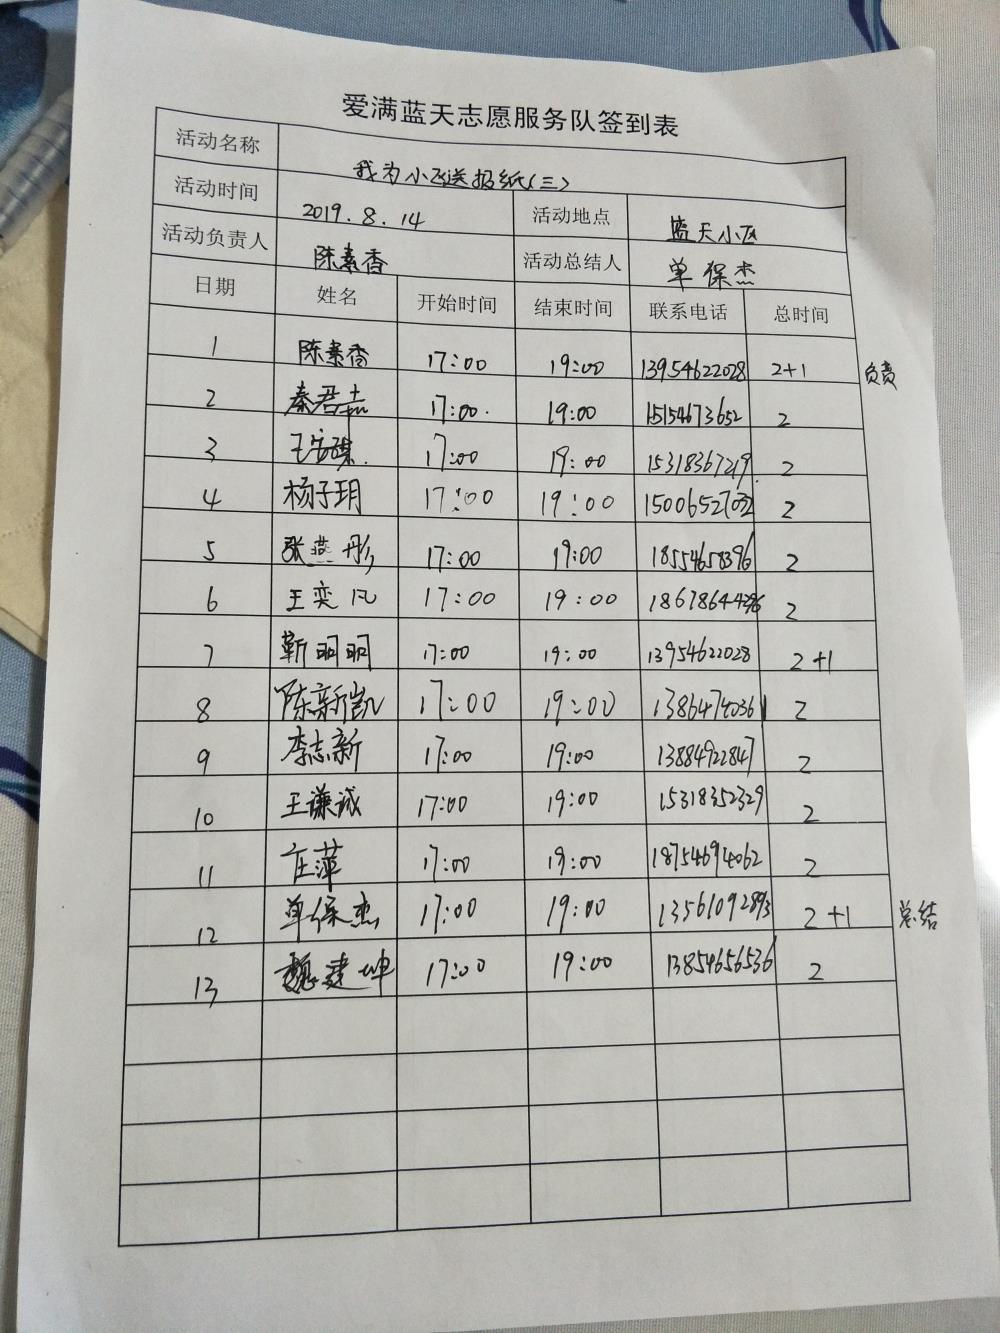 爱满蓝天志愿服务队签到表
活动名称 我为小区送报纸(三)
活动时间 2019.8.14 活动地点 蓝天小区
活动负责人 陈素香 活动总结人 单保杰
日期 姓名 开始时间 结束时间 联系电话 总时间
1 陈素香 17:00 19:00 13954622028 2+1 负责
2 秦君 17:00. 19:00 15154673652 2
3 王安 17:00 19:00 15318367219 2
4 杨子玥 17:00 19:00 2
5 张燕彤 17:00 19:00 18554658396 2
6 王奕凡 17:00 19:00 2
7 靳明明 17:00 19:00 13954622028 2+1
8 陈新凯 17:00 19:00 13864740361 2
9 李志新 17:00 19:00 13884922847 2
10 王谦诚 17:00 19:00 15318352329 2
11 庄萍 17:00 19:00 18754694062 2
12 单保杰 17:00 19:00 13561092893 2+1 总结
13 魏建坤 17:00 19:00 13854656536 2